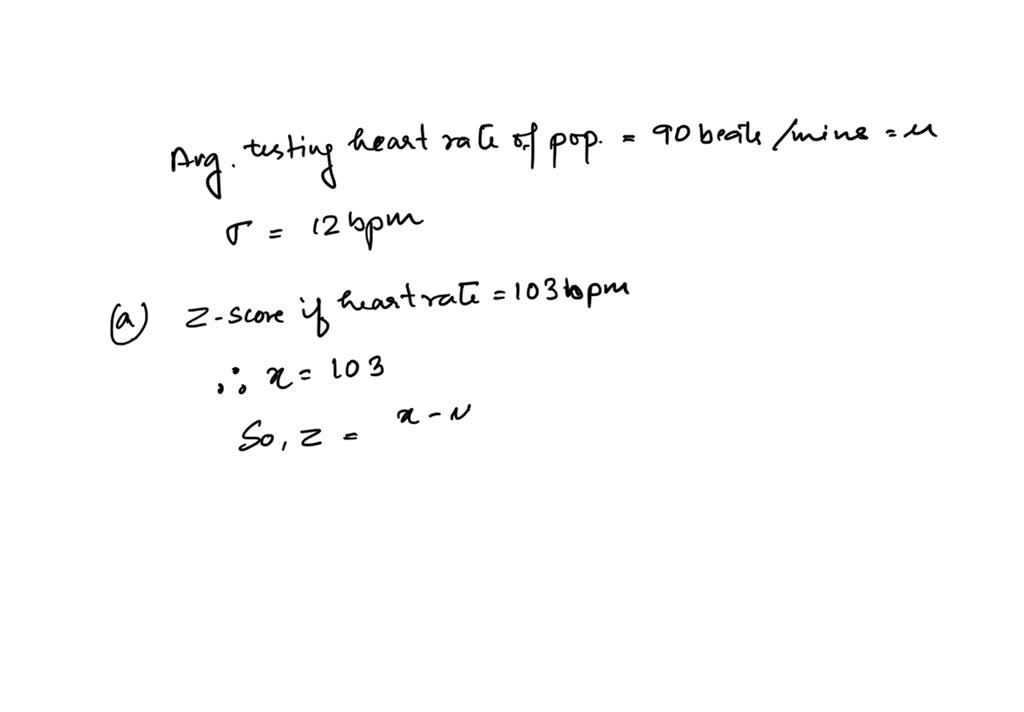 Avg. testing heart rate of pop. = 90 beats /mins = μ
σ = 12 bpm
(a) Z-score if heart rate = 103 bpm
∴ x = 103
So, z = x - μ